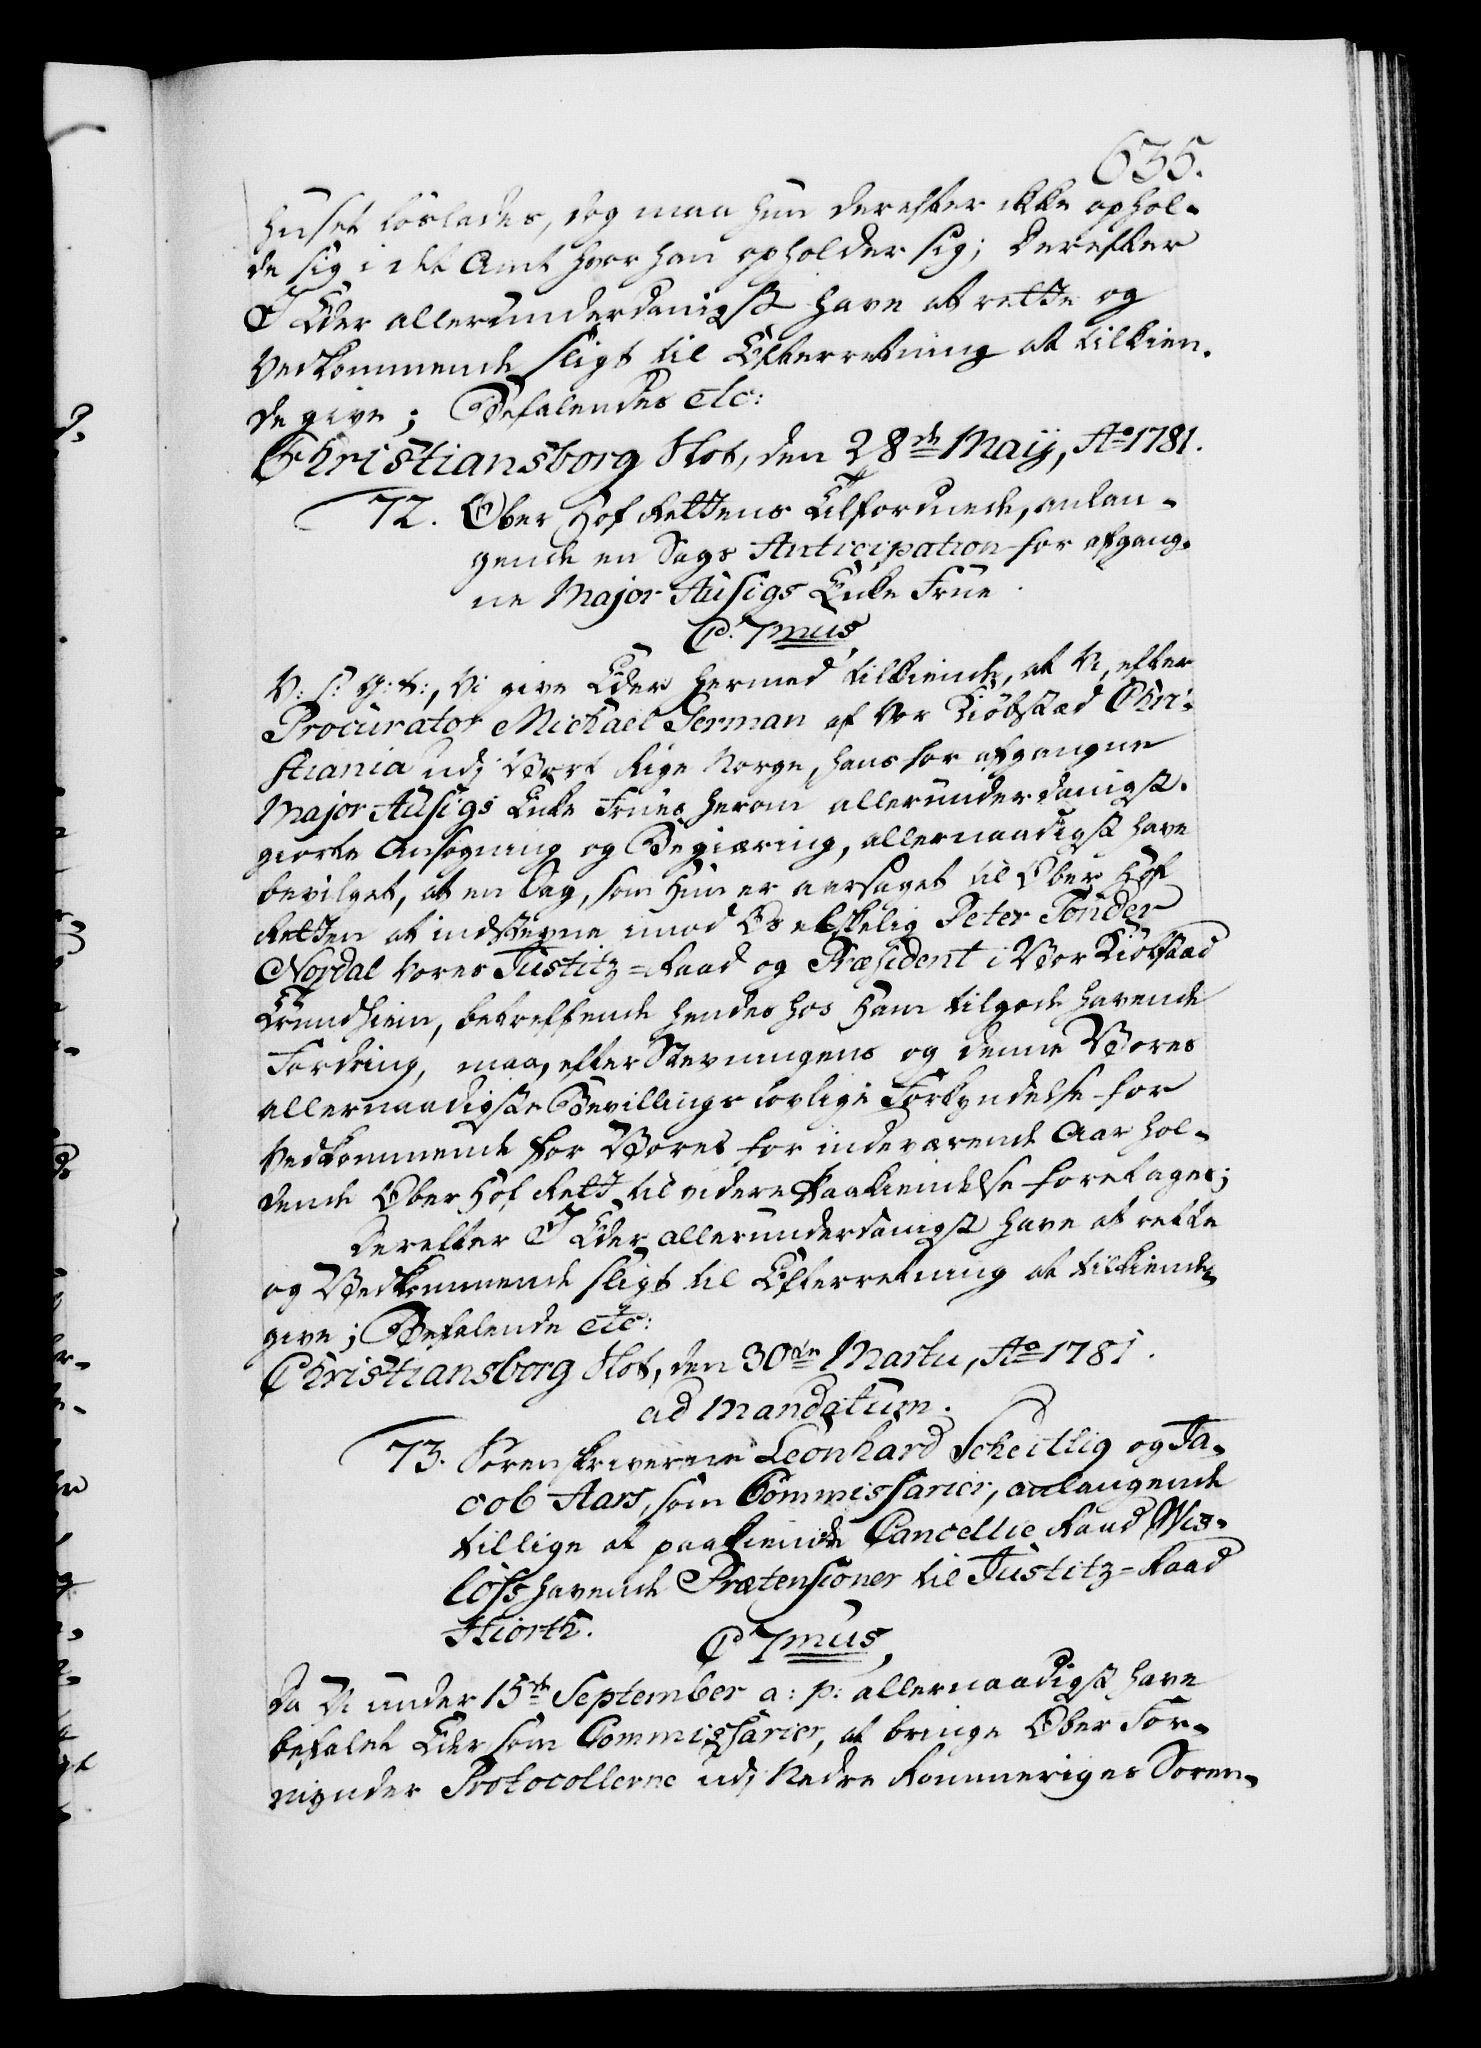 635.
huset løslades, dog maa hun derefter ikke ophol-
de sig i det Amt hvor han opholder sig; Derefter
I Eder allerunderdanigst have at rette og
Vedkommende sligt til Efterretning at tilkien-
de give; Befalendes etc:
Christiansborg Slot, den 28de Maij, Ao 1781.
72. Ober Hof Rettens Tilforordnede, anlan-
gende en Sags Anticipation for afgang-
ne Major Ausigs Enke Frue.
C. 7mus
V: S: G: T:, Vi give Eder hermed tilkiende, at Vi, efter
Procurator Michael Serman af Vor Kiøbstæd Chri-
stiania udj Vort Rige Norge, hans for afgangne
Major Ausigs Enke Frues herom allerunderdanigst
giorte Ansøgning og Begiæring, allernaadigst have
bevilget, at en Sag, som Hun er aarsaget til Ober Hof
Retten at indstevne imod Os elskelig Peter Tønder
Nordal Vores Justitz-Raad og Præsident i Vor Kiøbstæd
Trundhiem, betreffende hendes hos Ham tilgode havende
Fordring, maa, efter Stevningens og denne Vores
allernaadigste Bevillings lovlige Forkyndelse for
Vedkommende for Vores for indeværende Aar hol-
dende Ober Hof Rett til videre Paakiendelse foretages;
Derefter I Eder allerunderdanigst have at rette
og Vedkommende sligt til Efterretning at tilkiende
give; Befalende etc:
Christiansborg Slot, den 30te Martii, Ao 1781.
ad mandatum.
73. Sorenskriverne Leonhard Scheitlig og Ja-
cob Aars, som Commissarier, anlangende
tillige at paakiende Cancellie Raad Wis-
løfs havende Prætensioner til Justitz-Raad
Hiorth.
C 7mus,
Da Vi under 15de September a: p: allernaadigst have
befalet Eder som Commissarier, at bringe Ober For-
mynder Protocollerne udj Nedre Rommeriges Soren-